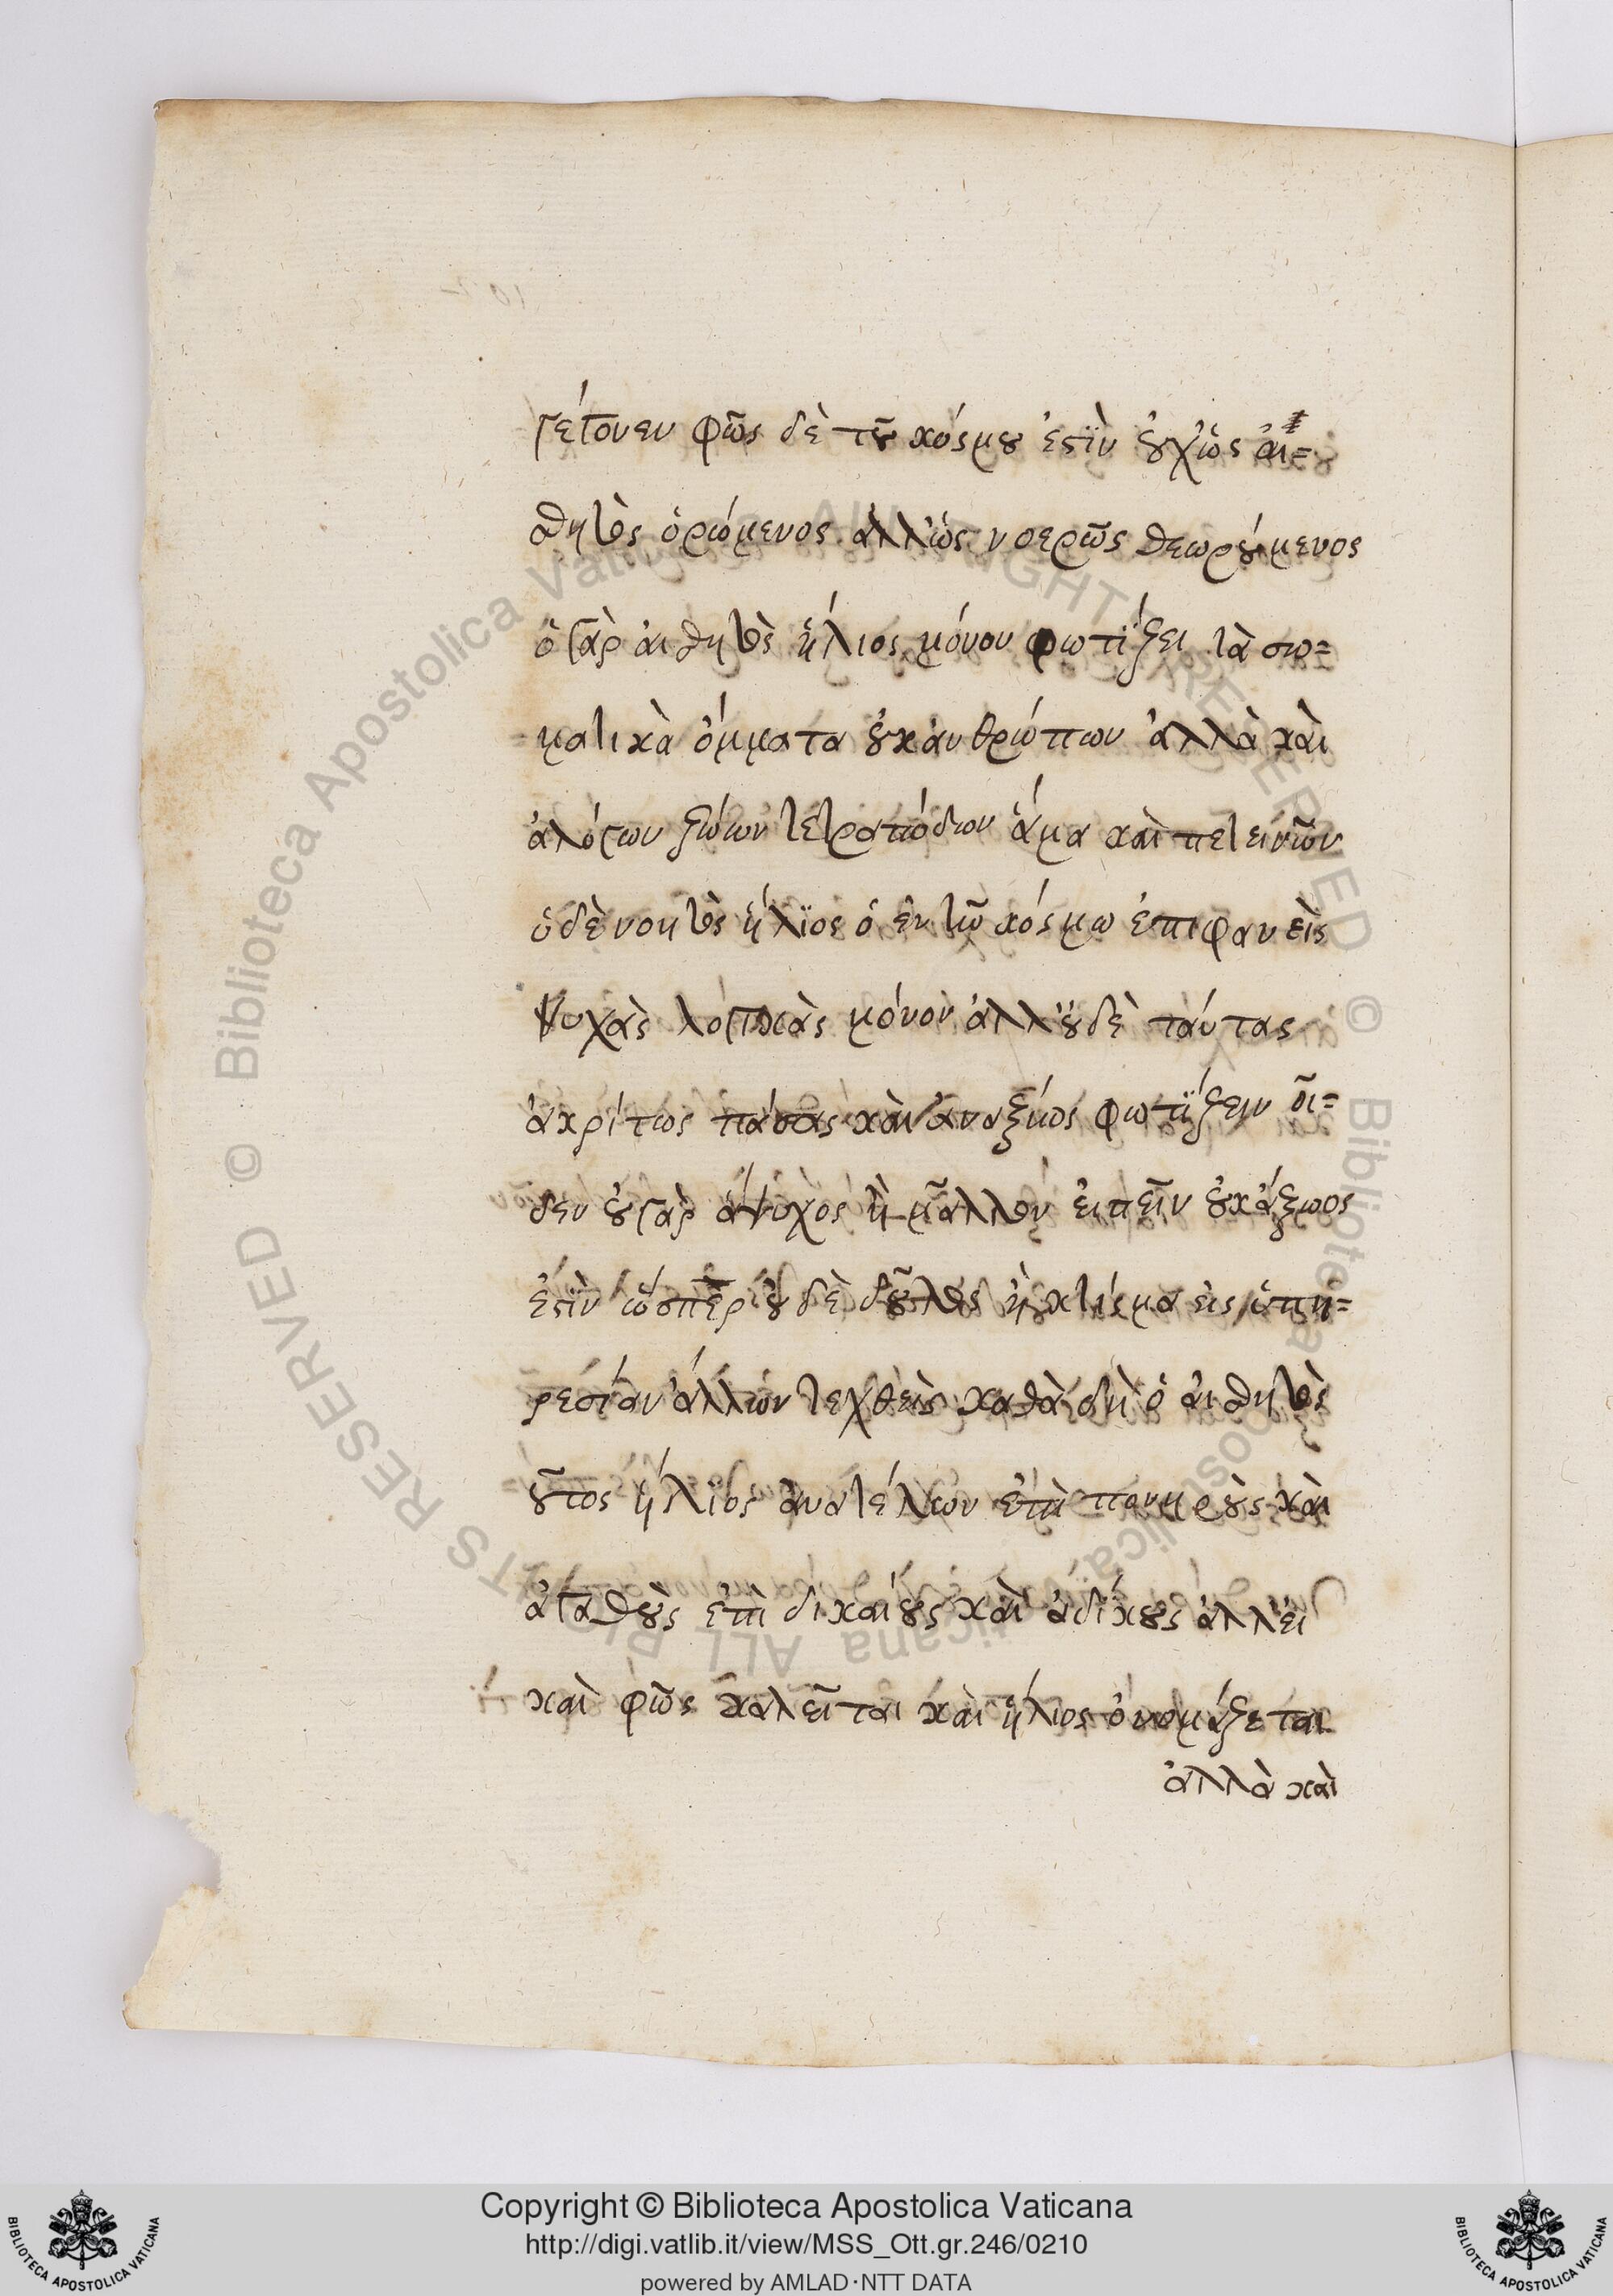 γέγονεν φῶς δὲ τοῦ κόσμου ἐστὶν οὐχ' ὡς αἰ=
σθητὸς ὁρώμενος ἀλλ' ὡς νοερῶς θεωρούμενος
ὁ γὰρ αἰσθητὸς ἥλιος μόνον φωτίζει τὰ σω=
ματικὰ ὄμματα οὐκ ἀνθρώπων ἀλλὰ καὶ
ἀλόγων ζώων τετραπόδων ἅμα καὶ πετεινῶν
ὁ δὲ νοητὸς ἥλιος ὁ ἐν τῶ κόσμω ἐπιφανεὶς
ψυχὰς λογικὰς μόνον ἀλλ' οὐδὲ ταύτας
ἀκρίτως πάσας καὶ ἀναξίως φωτίζειν οἶ=
δεν οὐ γὰρ ἄψυχος ἢ μᾶλλον εἰπεῖν οὐκ ἄξωος
ἐστὶν ὥσπερ οὐδὲ δοῦλος ἢ κτίσμα εἰς ὑπη=
ρεσίαν ἄλλων ταχθεὶς καθὰ δὴ ὁ αἰσθητὸς
οὗτος ἥλιος ἀνατέλλων ἐπὶ πονηροὺς καὶ
ἀγαθοὺς ἐπὶ δικαίους καὶ ἀδίκους ἀλλ' εἰ
καὶ φῶς καλεῖται καὶ ἥλιος ὀνομάζεται
ἀλλὰ καὶ
© Biblioteca Apostolica Vaticana ALL RIGHTS RESERVED © Biblioteca Apostolica Vaticana ALL RIGHTS RESERVED
Copyright © Biblioteca Apostolica Vaticana
http://digi.vatlib.it/view/MSS_Ott.gr.246/0210
powered by AMLAD·NTT DATA
BIBLIOTECA APOSTOLICA VATICANA
BIBLIOTECA APOSTOLICA VATICANA